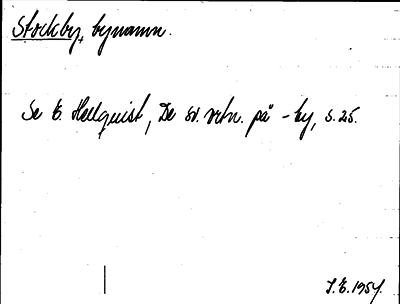 Stockby, bynamn.
Se E. Hellquist, De sv. ortn. på -by, s. 25.
S.E. 1954.